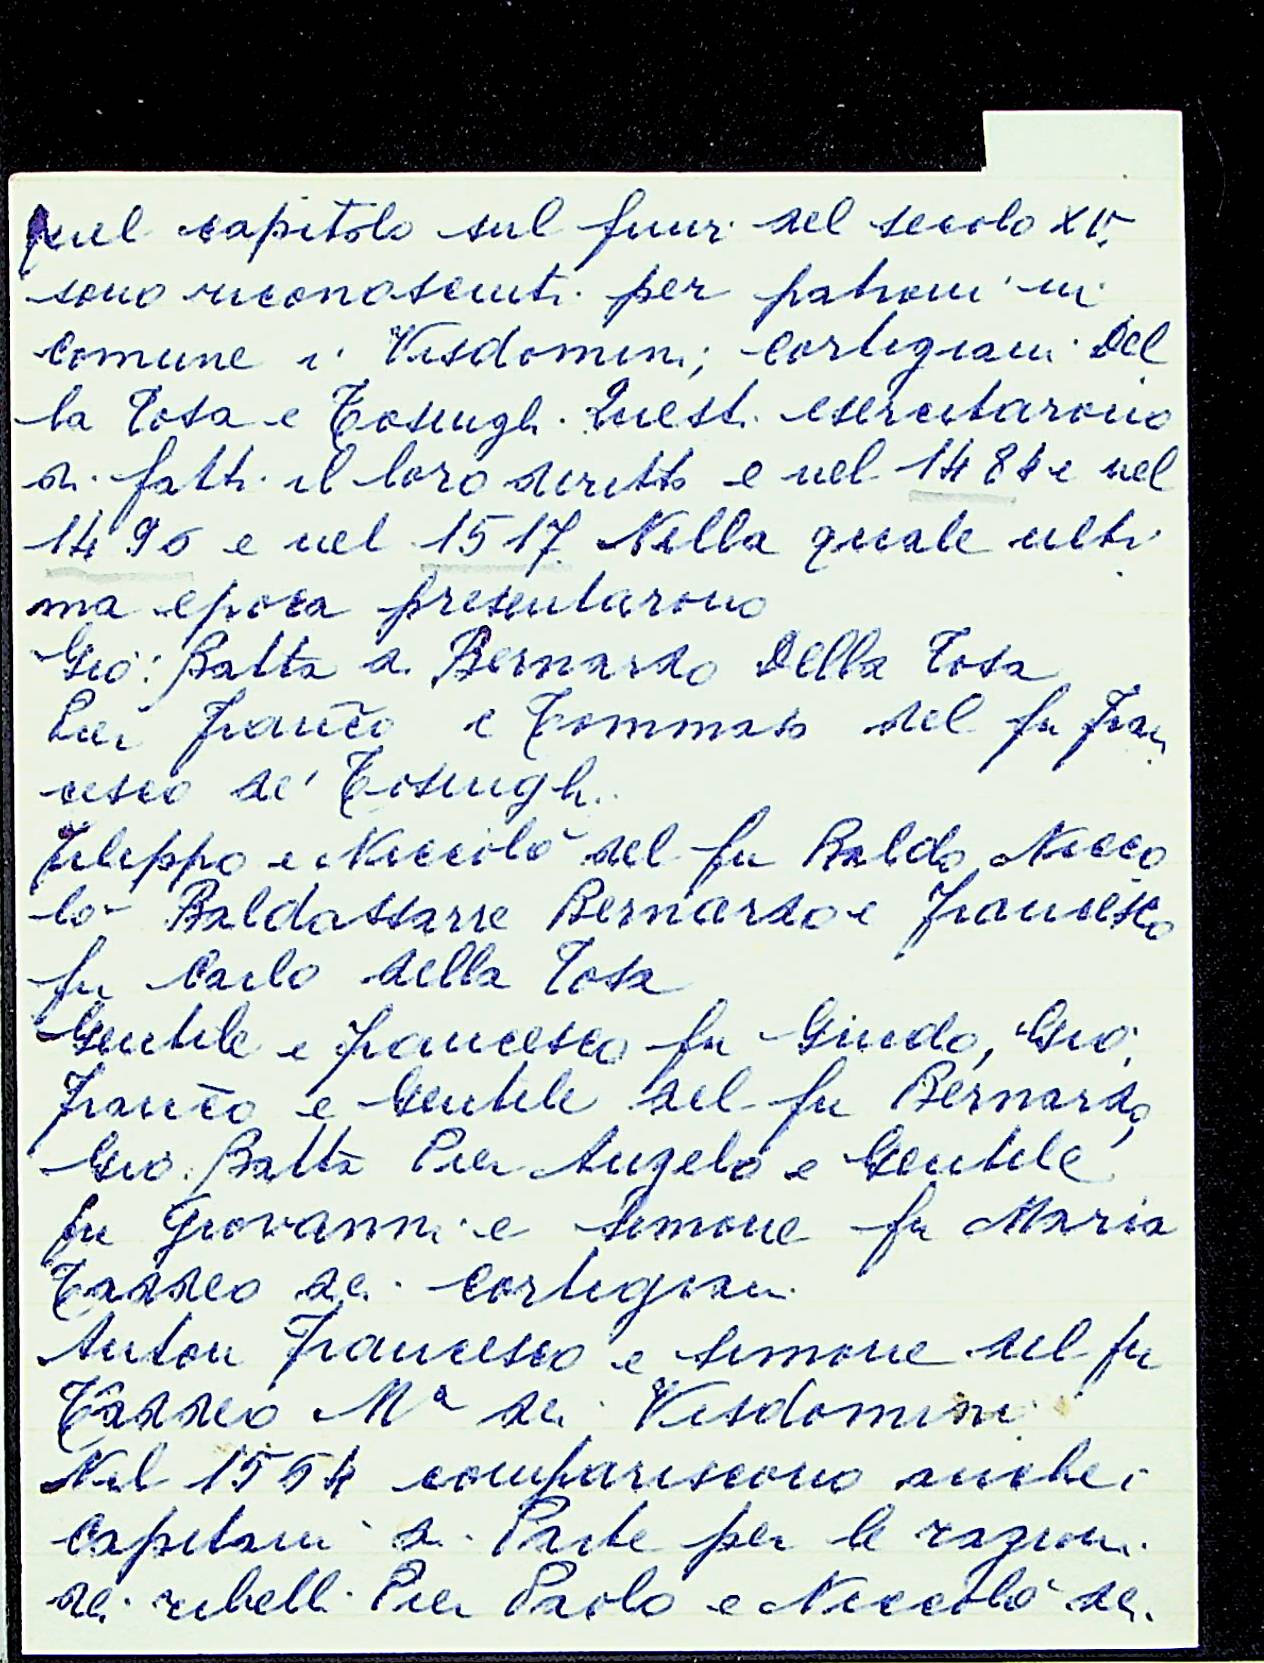 quel capitolo sul finir del secolo XV.
sono riconosciuti per patroni in
comune i Visdomini, Cortigiani Del
la Tosa e Tosinghi. Questi esercitarono
di fatti il loro diritto e nel 1484 e nel
1490 e nel 1517. Nella quale ulti
ma epoca presentarono
Gio: Batta di Bernardo Della Tosa
Pier Franco e Tommaso del fu Fran
cesco de' Tosinghi.
Filippo e Niccolò del fu Baldo, Nicco
lò Baldassarre Bernardo e Francesco
fu Carlo della Tosa
Gentile e Francesco fu Guido, Gio.
Franco e Gentile del fu Bernardo,
Gio. Batta Pier Angelo e Gentile
fu Giovanni e Simone fu Maria
Taddeo dei Cortigiani
Anton Francesco e Simone del fu
Taddeo Mª dei Visdomini
Nel 1554 compariscono anche i
Capitani di Parte per le ragioni
dei ribelli Pier Paolo e Niccolò dei